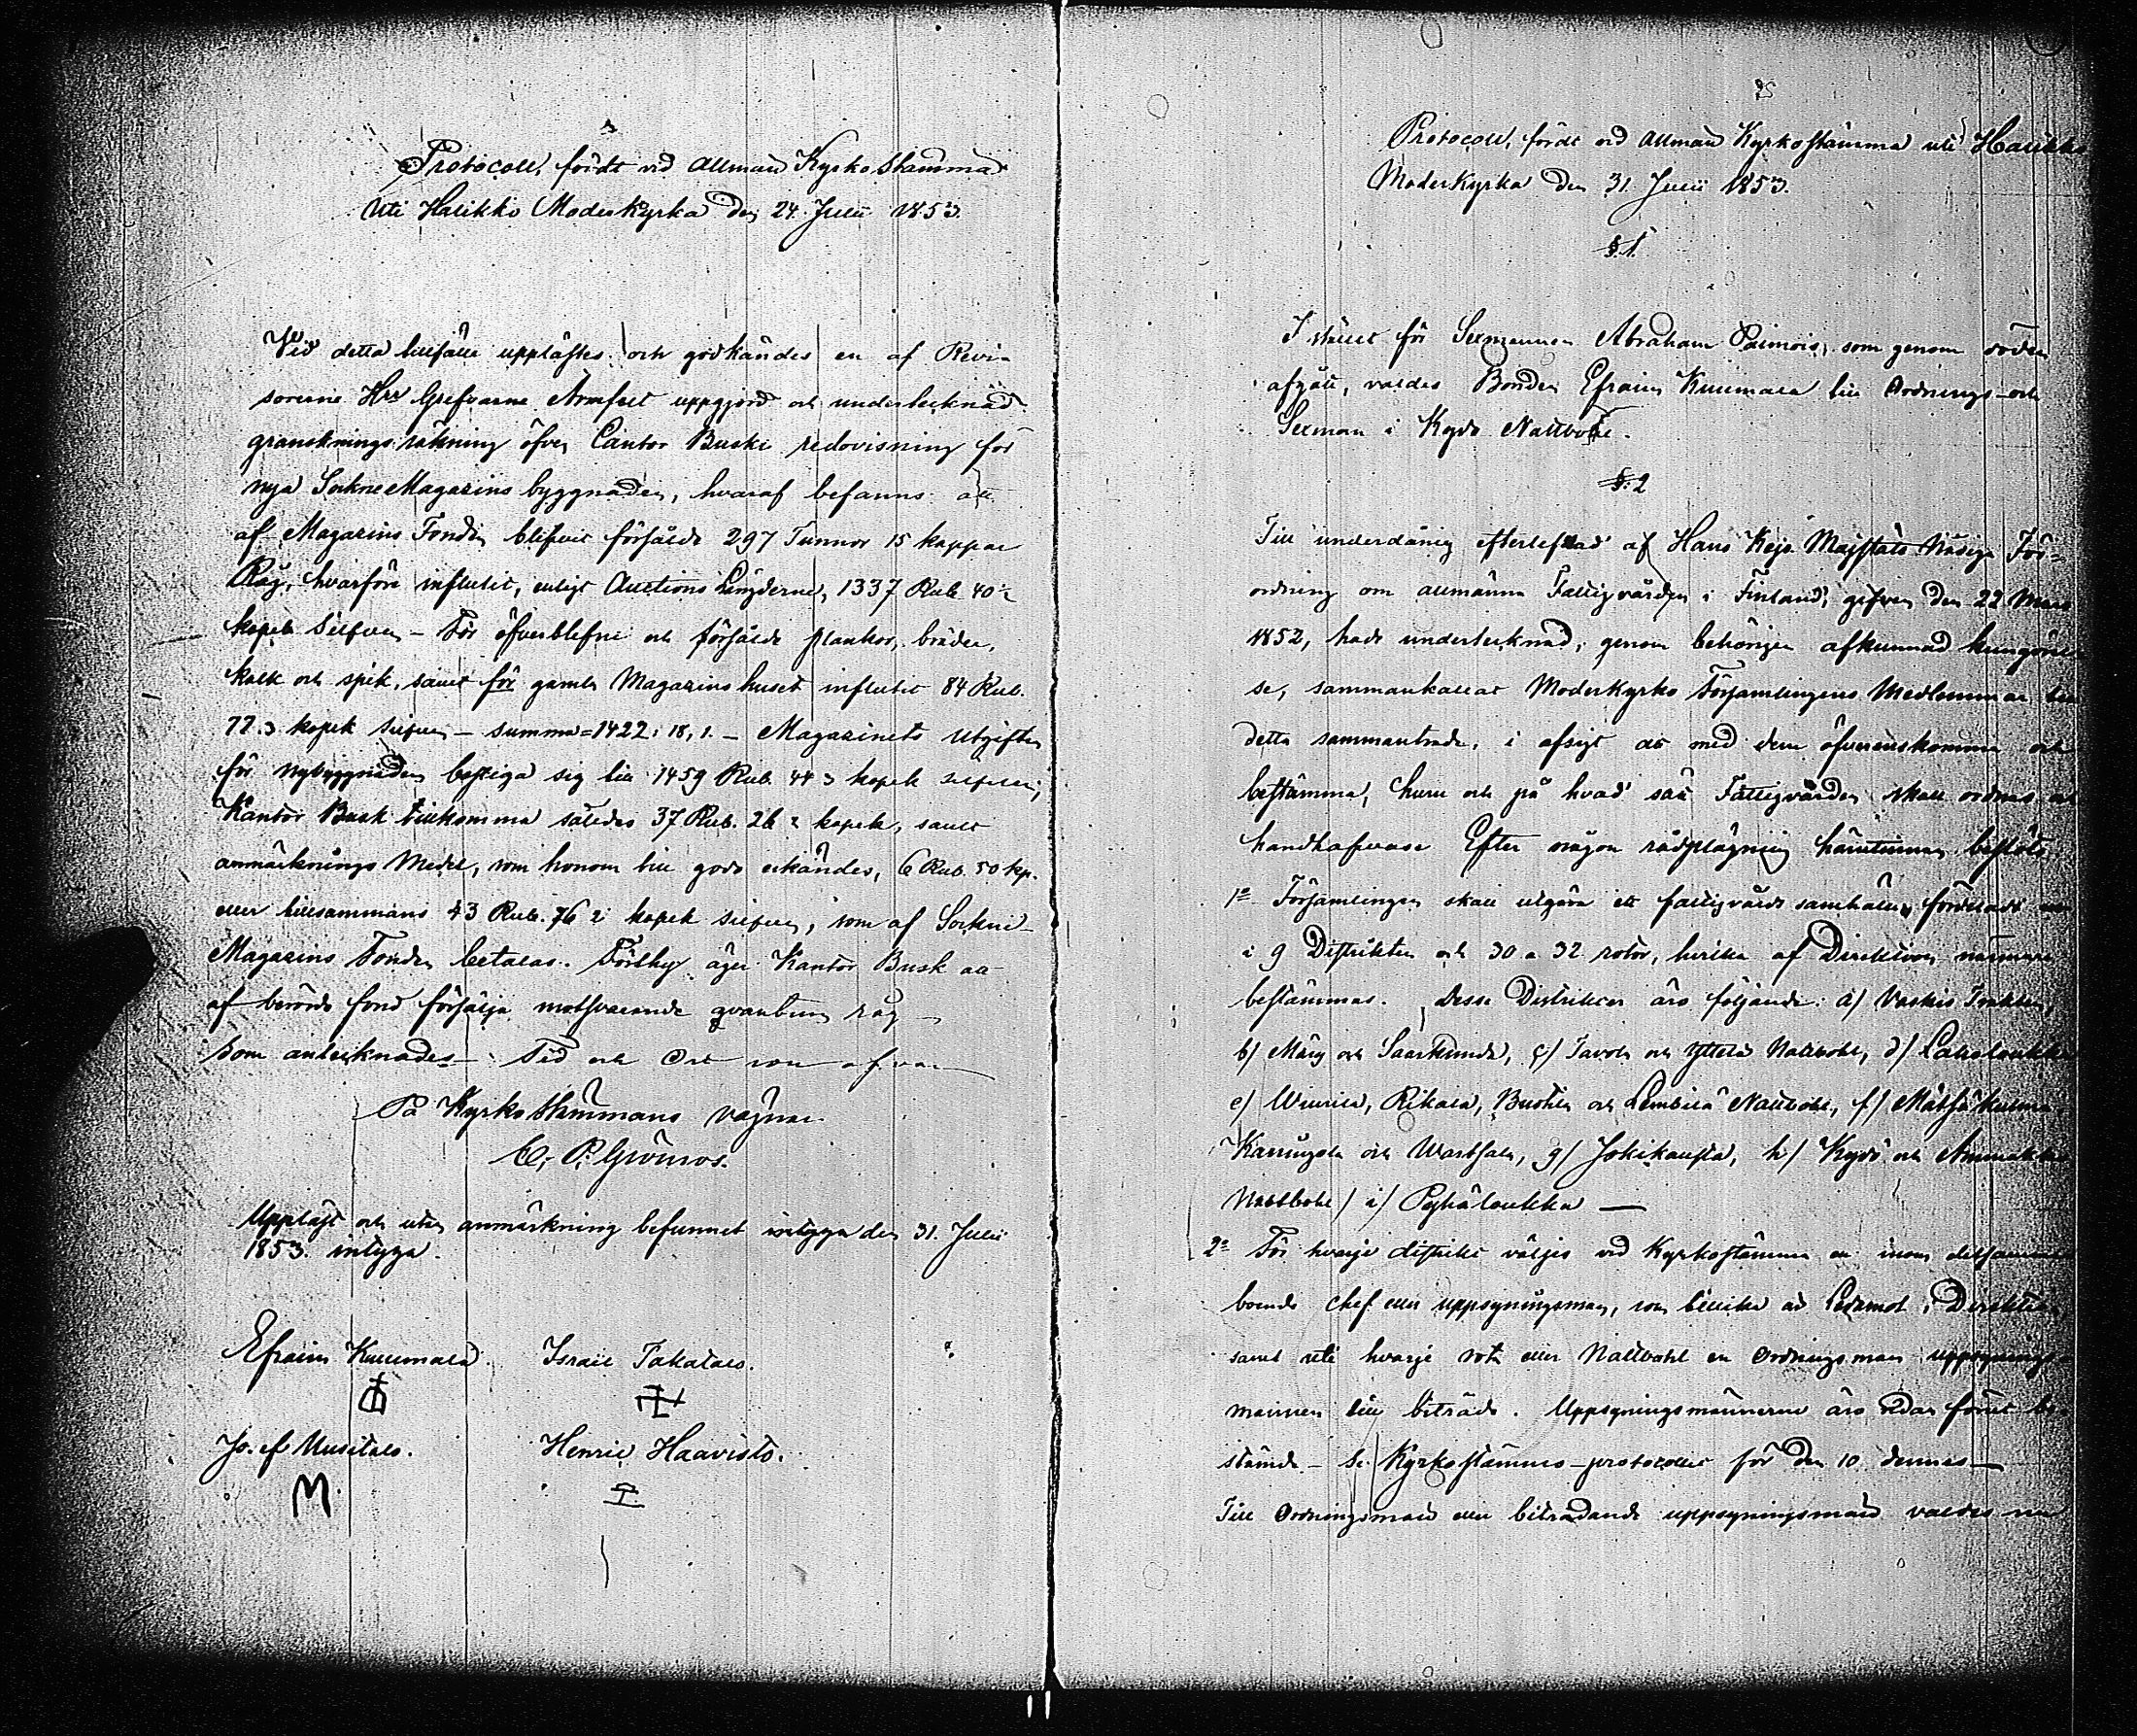 Protocoll, fördt vid Allmän Kyrkostämma
uti Halikko Moderkyrka den 24 Julii 1853.
Vid detta tillfälle upplästes och godkändes en af Revi-
sorerne Hrr Grefvarne Armfelt uppgjord och undertecknad
gransknings räkning öfver Cantor Busks redovisning för
nya SockneMagazins byggnaden, hvaraf befanns att
af Magazins Fonden blifvit försålde 297 Tunnor 15 kappar
Råg, hvarföre influtit, enligt Auctions Längderne, 1337 Rub. 40 2
kopek Silfver – För öfverblefne och försålde plankor, bräder,
kalk och spik, samt för gamla Magazins huset influtit 84 Rub.
77.3 kopek silfver – summa = 1422: 18, 1. – Magazinets Utgifter
för nybyggnaden bestiga sig till 1459 Rub. 44 3 kopek silfver;
Kantor Busk tillkomma således 37 Rub. 26 2 kopek, samt
anmärknings Medel, som honom till godo erkändes, 6 Rub. 50 kp.
eller tillsammans 43 Rub. 76 2 kopek silfver, som af Sockne-
Magazins Fonden betalas. Förthy äger Kantor Busk att
af berörde fond försälja motsvarande qvantum råg –
Som antecknades – Tid och Ort som ofvan
På Kyrkostämmans vägnar
C. P. Grönros.
Uppläst och utan anmärkning befunnet intyga den 31. Julii
1853. intyga.
Efraim Kuumala. Israel Takatalo.
Josef Uusitalo. Henric Haavisto.
M.
Protocoll, fördt vid Allmän Kyrkostämma uti Halikko
Moderkyrka den 31. Julii 1853.
§. 1.
I stället för Sexmannen Abraham Paimois, som genom döden
afgått, valdes Bonden Efraim Kuumala till Ordnings- och
Sexman i Kydö Nattvohl.
§. 2
Till underdånig efterlefnad af Hans Kejs. Majestäts Nådiga För-
ordning om allmänna Fattigvården i Finland, gifven den 22 Mars
1852, hade undertecknad, genom behörigen afkunnad kungörel-
se, sammankallat Moderkyrko Församlingens Medlemmar till
detta sammanträde, i afsigt att med dem öfverenskomma och
bestämma, huru och på hvad sätt Fattigvården skall ordnas och
handhafvas. Efter någon rådplägning härutinnan beslöts
1º Församlingen skall utgöra ett fattigvårds samhälle, fördeladt
i 9 Distrikter och 30 a 32 rotor, hvilka af Direktion närmare
bestämmas. Desse Distrikter äro följande: a) Vaskis Trakten,
b) Märy och Saarkunda, c) Tavola och Yttelä Nattvohl, d) Laholoukka
e) Wiurila, Rikala, Bustila och Lembilä Nattvohl, f)
Karvugola och Wartsala, g) Jokikausta, h) Kydö och
Nattvohl) i) Pyhäloukka —
2º För hvarje distrikt väljes vid Kyrkostämma en inom detsamma
boende chef eller uppsyningsman, som tillika är Ledamot i Direktion
samt uti hvarje rota eller Nattvohl en Ordningsman uppsynings-
mannen till biträde. Uppsyningsmännerne äro redan förut be-
stämde – Se Kyrkostämmo-protocollet för den 10 dennes —
Till Ordningsmän eller biträdande uppsyningsmän valdes nu